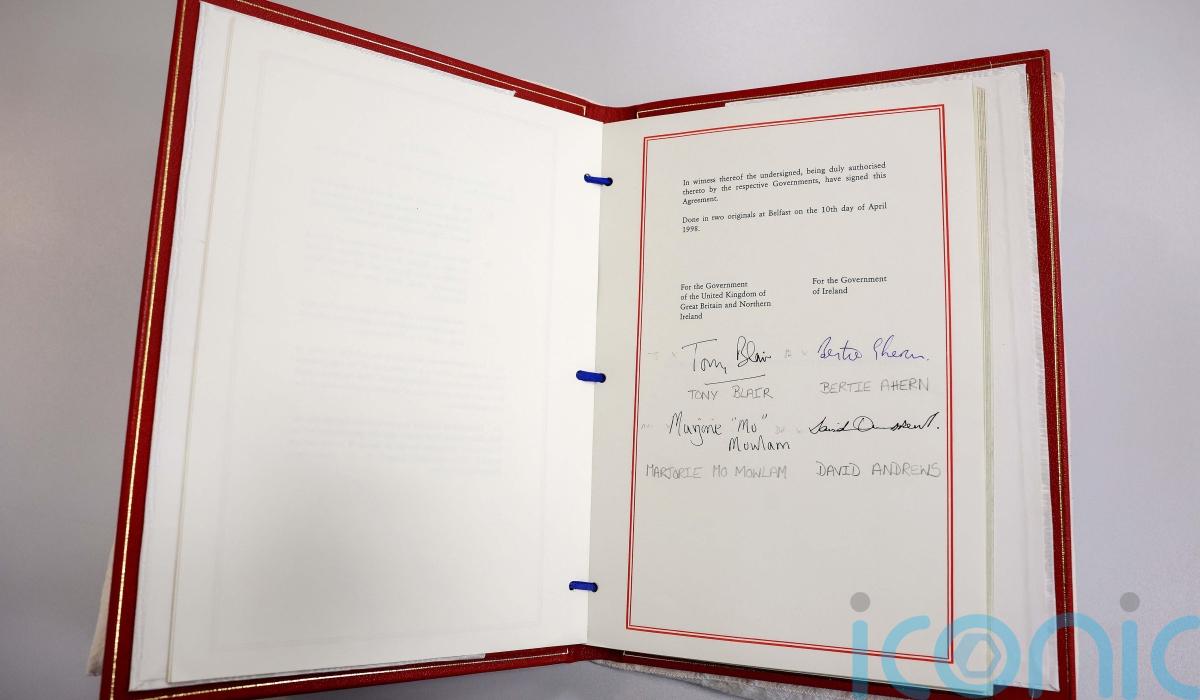 In witness thereof the undersigned, being duly authorised
thereto by the respective Governments, have signed this
Agreement.
Done in two originals at Belfast on the 10th day of April
1998.
For the Government
of the United Kingdom of
Great Britain and Northern
Ireland
For the Government
of Ireland
Tony Blair
Bertie Ahern.
TONY BLAIR
BERTIE AHERN
Marjorie "Mo"
Mowlam
David Andrews.
MARJORIE MO MOWLAM
DAVID ANDREWS
iconic